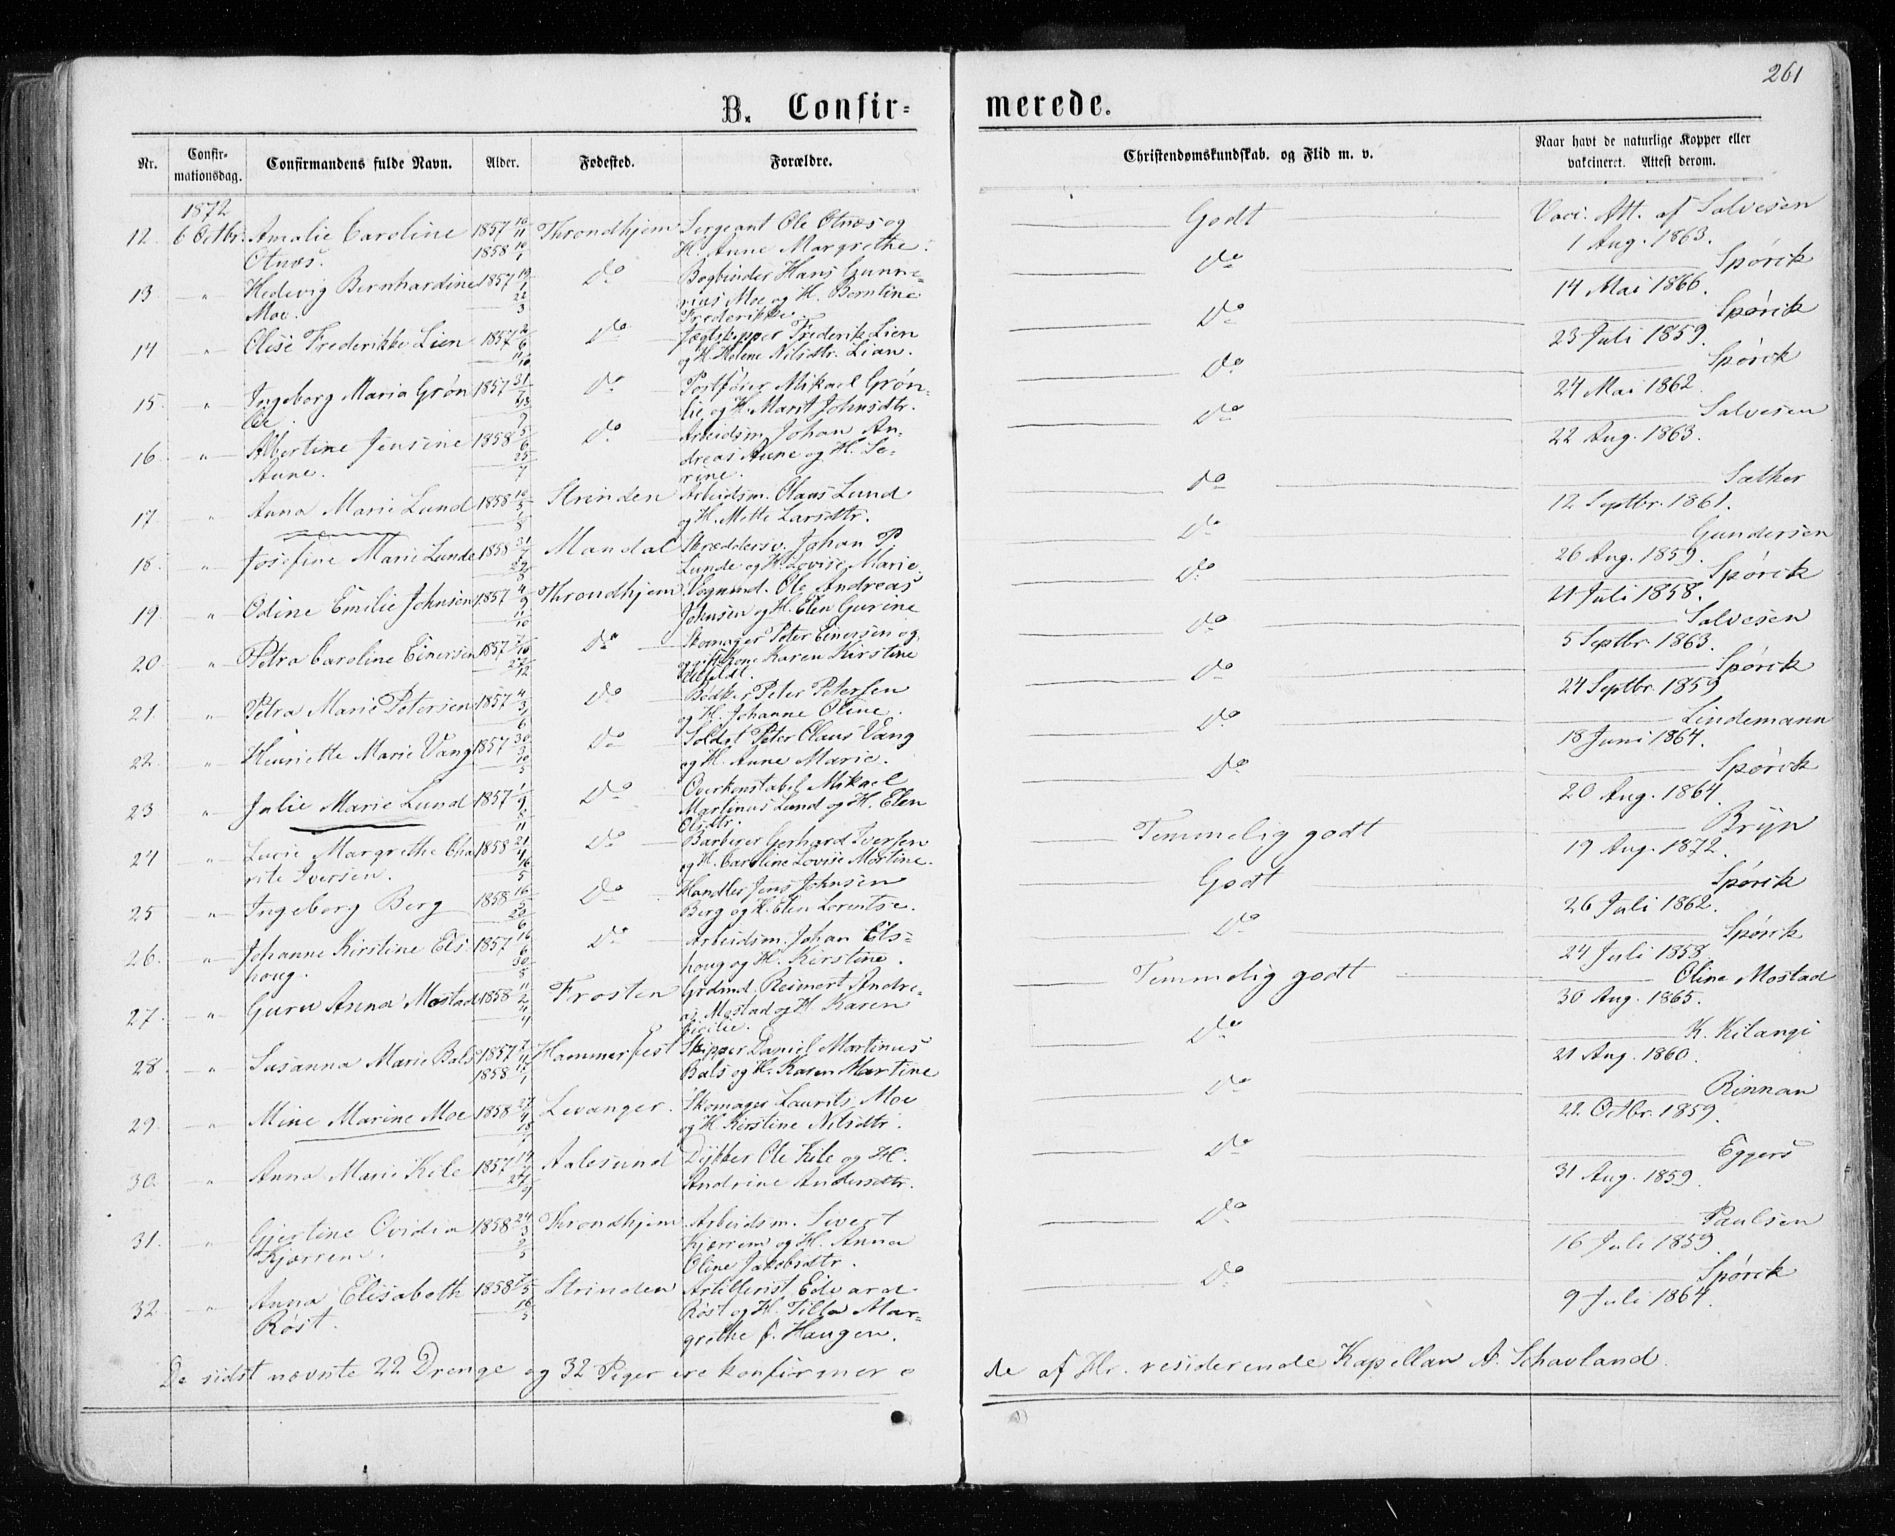 261
B. Confir=
merede.
Nr.
Confir-
mationsdag.
Confirmandens fulde Navn.
Alder.
Fødested.
Forældre.
Christendomskundskab. og Flid m. v.
Naar havt de naturlige Kopper eller
vakcineret. Attest derom.
1872
12. 6 Octbr. Amalie Caroline 1857 16/11 Throndhjem Sergeant Ole Otnæs og Godt Vacc. Att. af Salvesen
Otnæs. 1858 H. Anne Margrethe. 1 Aug. 1863.
13 " Hedevig Bernhardine 1857 Do Bogbinder Hans Gunne- Do Spørck
Moe. rius Moe og H. Berntine 14 Mai 1866.
Frederikke.
14 " Olise Frederikke Lien 1857 Do Jægtskipper Frederik Lien Do Spørck
og H. Helene Nilsdtr. Lian. 23 Juli 1859.
15. " Ingeborg Maria Grøn 1857 Do Postfører Mikael Grøn- Do Spørck
lie. lie og H. Marit Johnsdtr. 24 Mai 1862.
16 " Albertine Jensine 1858 Do Arbeidsm. Johan An- Do Salvesen
Aune. dreas Aune og H. Se- 22 Aug. 1863.
rine.
17 " Anna Marie Lund 1858 Strinden Arbeidsm. Olaus Lund Do Sæther
og H. Mette Larsdtr. 12 Septbr. 1861.
18. " Josefine Marie Lunde 1858 Mandal Skræddersv. Johan P. Do Gundersen
Lunde og H. Lovise Marie. 26 Aug. 1859.
19 " Odine Emilie Johnsen 1857 Throndhjem Vognmd. Ole Andreas Do Spørck
Johnsen og H. Elen Gurine 21 Juli 1858.
20 " Petra Caroline Einersen 1857 Do Skomager Peter Einersen og Do Salvesen
Kone Karen Kirstine 5 Septbr. 1863.
21. " Petra Marie Petersen 1857 Do Bødker Peter Petersen Do Spørck
og H. Johanne Oline. 24 Septbr. 1859
22 " Henriette Marie Vang 1857 Do Soldat Peter Claus Vang Do Lindemann
og H. Anne Marie. 18 Juni 1864.
23 " Julie Marie Lund 1857 Do Overkonstabel Mikael Do Spørck
Martinus Lund og H. Elen 20 Aug. 1864.
Olsdtr.
24 " Lucie Margrethe Cha 1858 Do Barberer Gerhard Iversen Temmelig godt Bryn
rite Iversen. og H. Caroline Lovise Martine. 19 Aug. 1872.
25 " Ingeborg Berg 1858 Do Handler Jens Johnsen Godt Spørck
Berg og H. Elen Lorentse. 26 Juli 1862.
26. " Johanne Kirstine Els- 1857 Do Arbeidsm. Johan Els- Do Spørck
houg. houg og H. Kirstine. 24 Juli 1858.
27. " Guru Anna Mostad 1858 Frosten Grdmd. Reinert Andre- Temmelig godt Oline Mostad
as Mostad og H. Karen 30 Aug. 1865.
28. " Susanna Marie Bals 1857 Hammerfest Skipper Daniel Martinus Do K. Kilangi
1858 Bals og H. Karen Martine 21 Aug. 1860.
29. " Mine Marine Moe 1858 Levanger. Skomager Laurits Moe Do Rinnan
og H. Kirstine Nilsdtr. 22 Octbr. 1859.
30. " Anna Marie Kile 1857 Aalesund Dykker Ole Kile og H. Do Eggers
Andrine Andersdtr. 31 Aug. 1859.
31. " Gjertine Ovidia 1858 Throndhjem Arbeidsm. Sivert Do Paulsen
Kjærrem. Kjærrem og H. Anna 16 Juli 1859.
Oline Jakobsdtr.
32. " Anna Elisabeth 1858 Strinden Artillerist Edvard Do Spørck
Røst. Røst og H. Tilla Mar- 9 Juli 1864.
grethe f. Haugen.
De sidst nævnte 22 Drenge og 32 Piger ere konfirmere
de af Hr. residerende Kapellan A. Schavland.